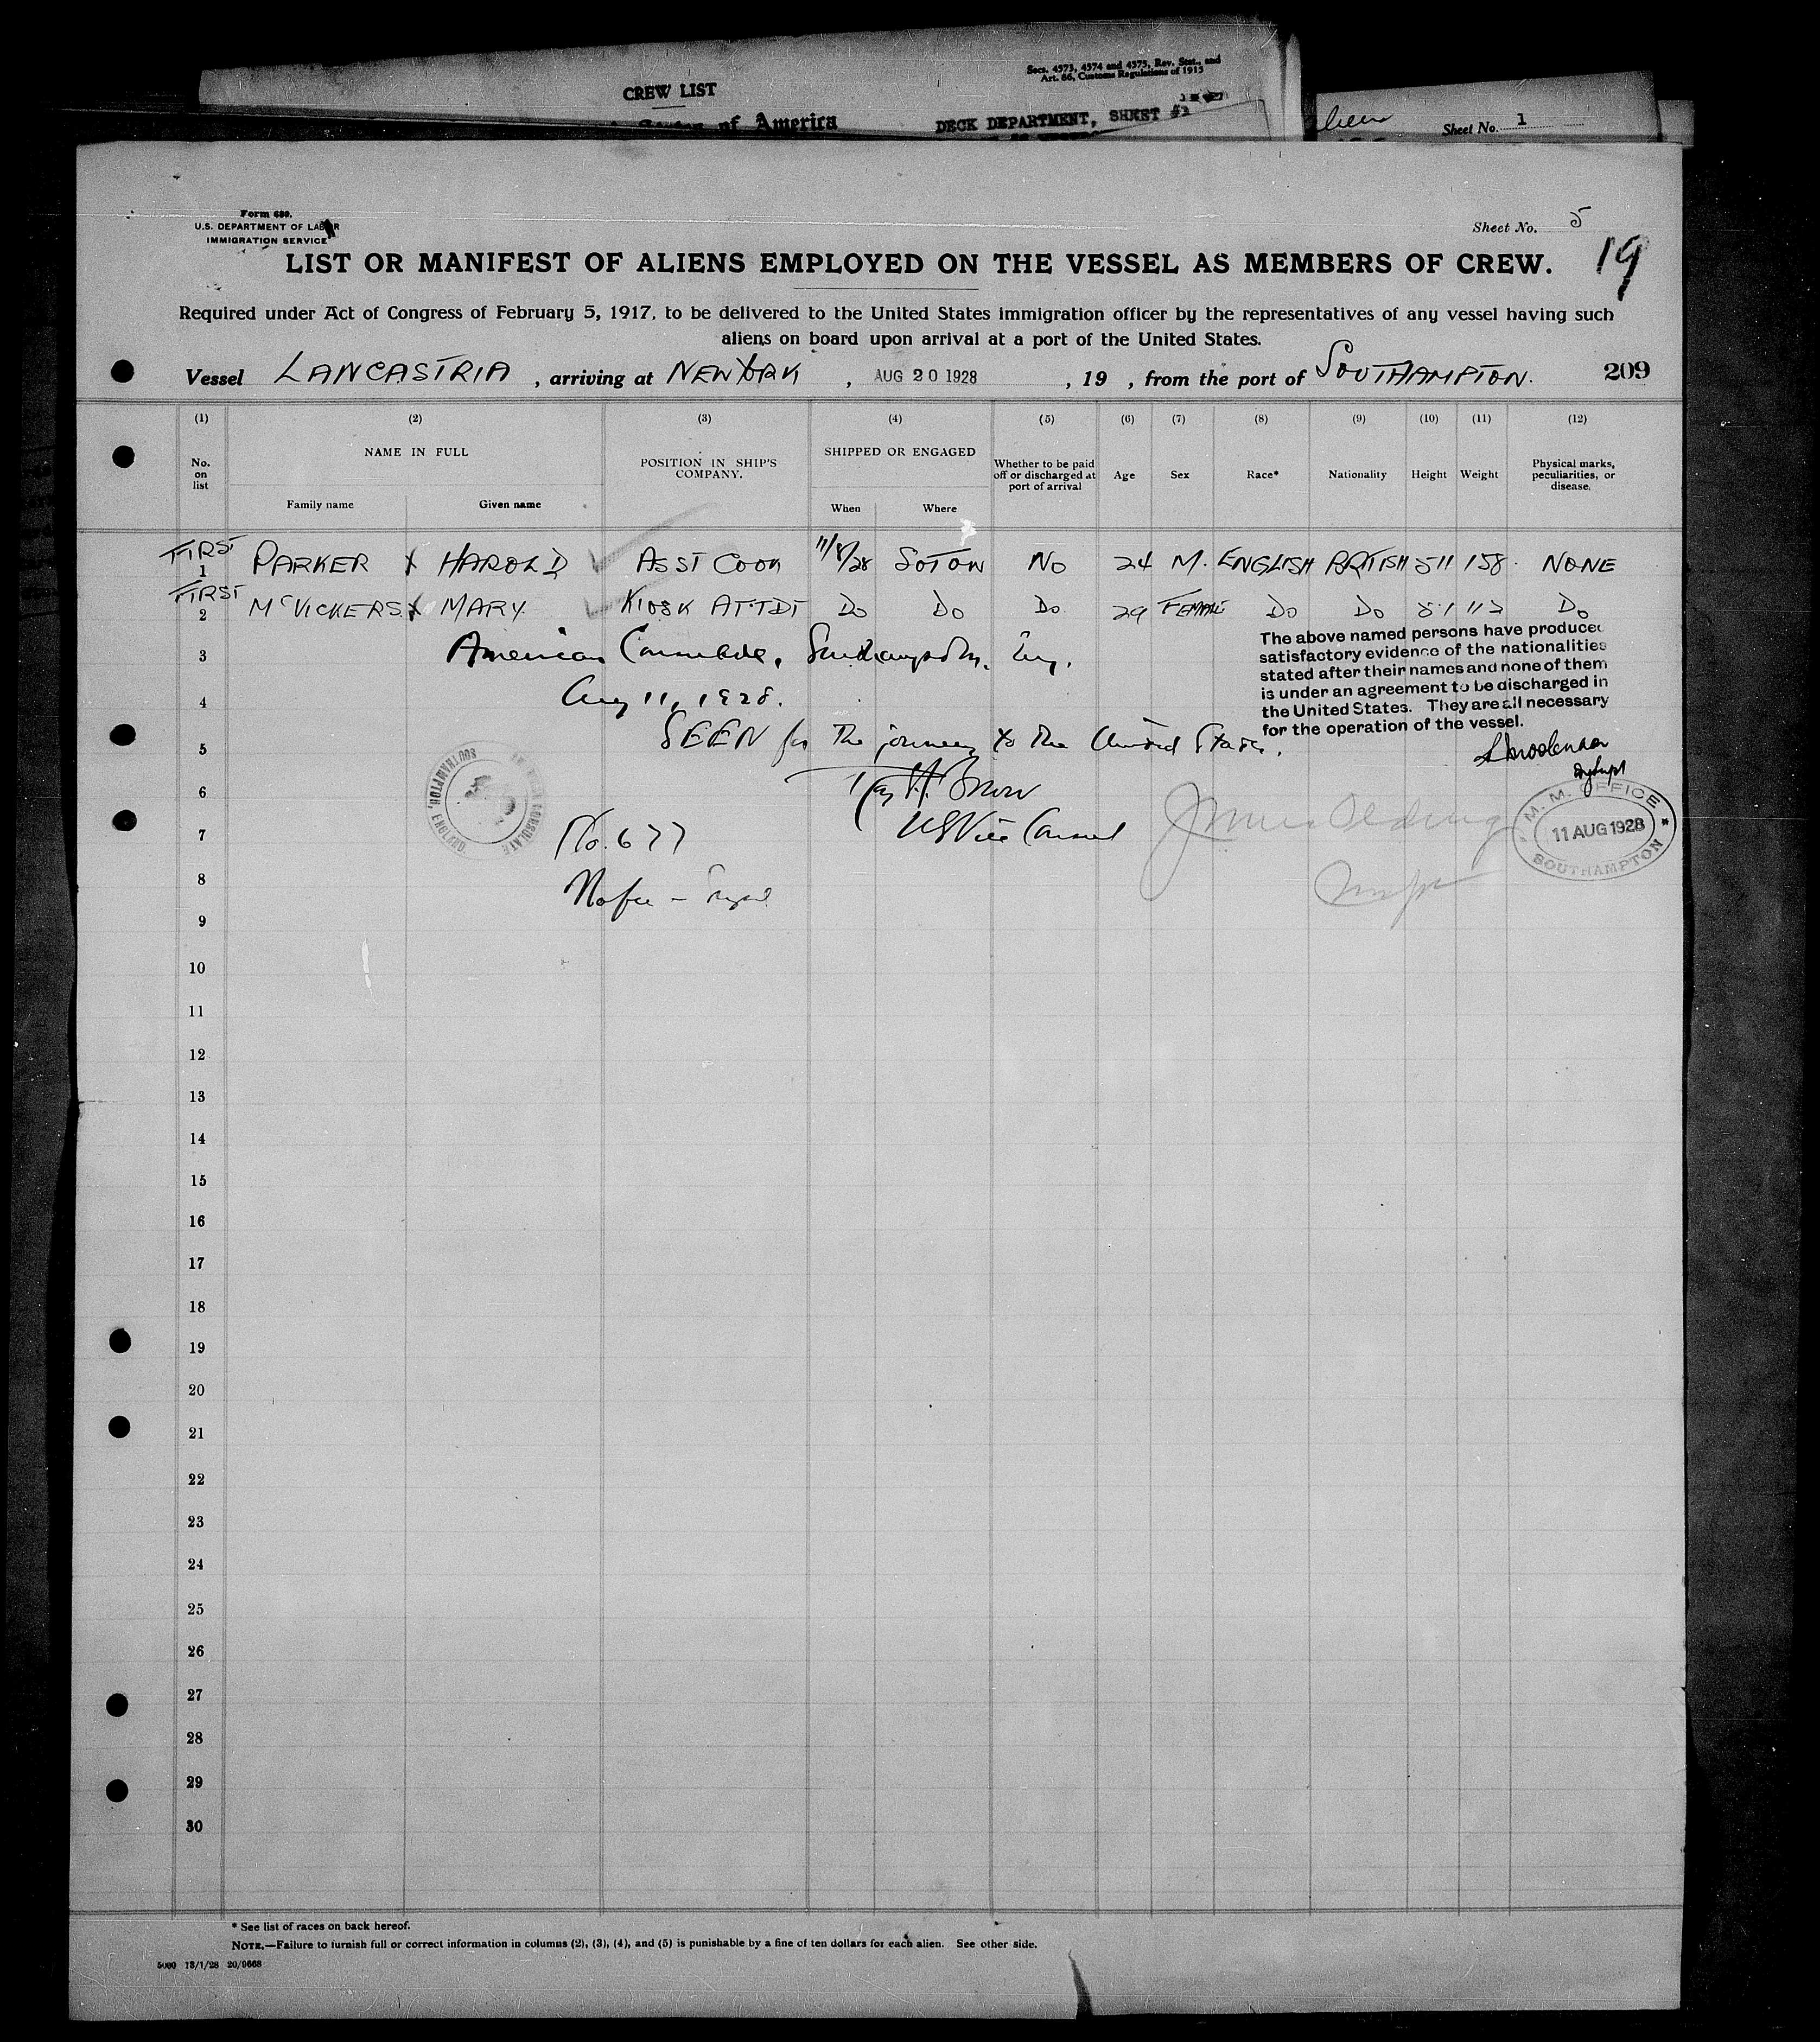 CREW LIST
Secs. 4573, 4574 and 4575, Rev. Stat., and
Art. 86, Customs Regulations of 1915
of America
DECK DEPARTMENT, SHEET #1
Sheet No. 1
Form 680.
U.S. DEPARTMENT OF LABOR
IMMIGRATION SERVICE
Sheet No. 5
19
LIST OR MANIFEST OF ALIENS EMPLOYED ON THE VESSEL AS MEMBERS OF CREW.
Required under Act of Congress of February 5, 1917, to be delivered to the United States immigration officer by the representatives of any vessel having such
aliens on board upon arrival at a port of the United States.
Vessel LANCASTRIA , arriving at NEW YORK , AUG 20 1928 , 19 , from the port of SOUTHAMPTON. 209
(1) (2) (3) (4) (5) (6) (7) (8) (9) (10) (11) (12)
No. on list NAME IN FULL Family name Given name POSITION IN SHIP'S COMPANY. SHIPPED OR ENGAGED When Where Whether to be paid off or discharged at port of arrival Age Sex Race* Nationality Height Weight Physical marks, peculiarities, or disease.
FIRST
1 PARKER X HAROLD ASST COOK 11/8/28 SOTON NO 24 M. ENGLISH BRITISH 5 11 158. NONE
FIRST
2 McVICKERS. X MARY KIOSK ATTDT DO DO DO 29 FEMALE DO DO 5.1 112 DO
The above named persons have produced
satisfactory evidence of the nationalities
stated after their names and none of them
is under an agreement to be discharged in
the United States. They are all necessary
for the operation of the vessel.
3 American Consulate, Southampton, Eng.
4 Aug 11, 1928.
5 SEEN for the journey to the United States.
SOUTHAMPTON, ENGLAND
AMERICAN CONSULATE
6
7 US Vice Consul
No. 677
M. M. OFFICE
11 AUG 1928
SOUTHAMPTON
8
No fee
9
10
11
12
13
14
15
16
17
18
19
20
21
22
23
24
25
26
27
28
29
30
* See list of races on back hereof.
NOTE.—Failure to furnish full or correct information in columns (2), (3), (4), and (5) is punishable by a fine of ten dollars for each alien. See other side.
5000 13/1/28 20/9668